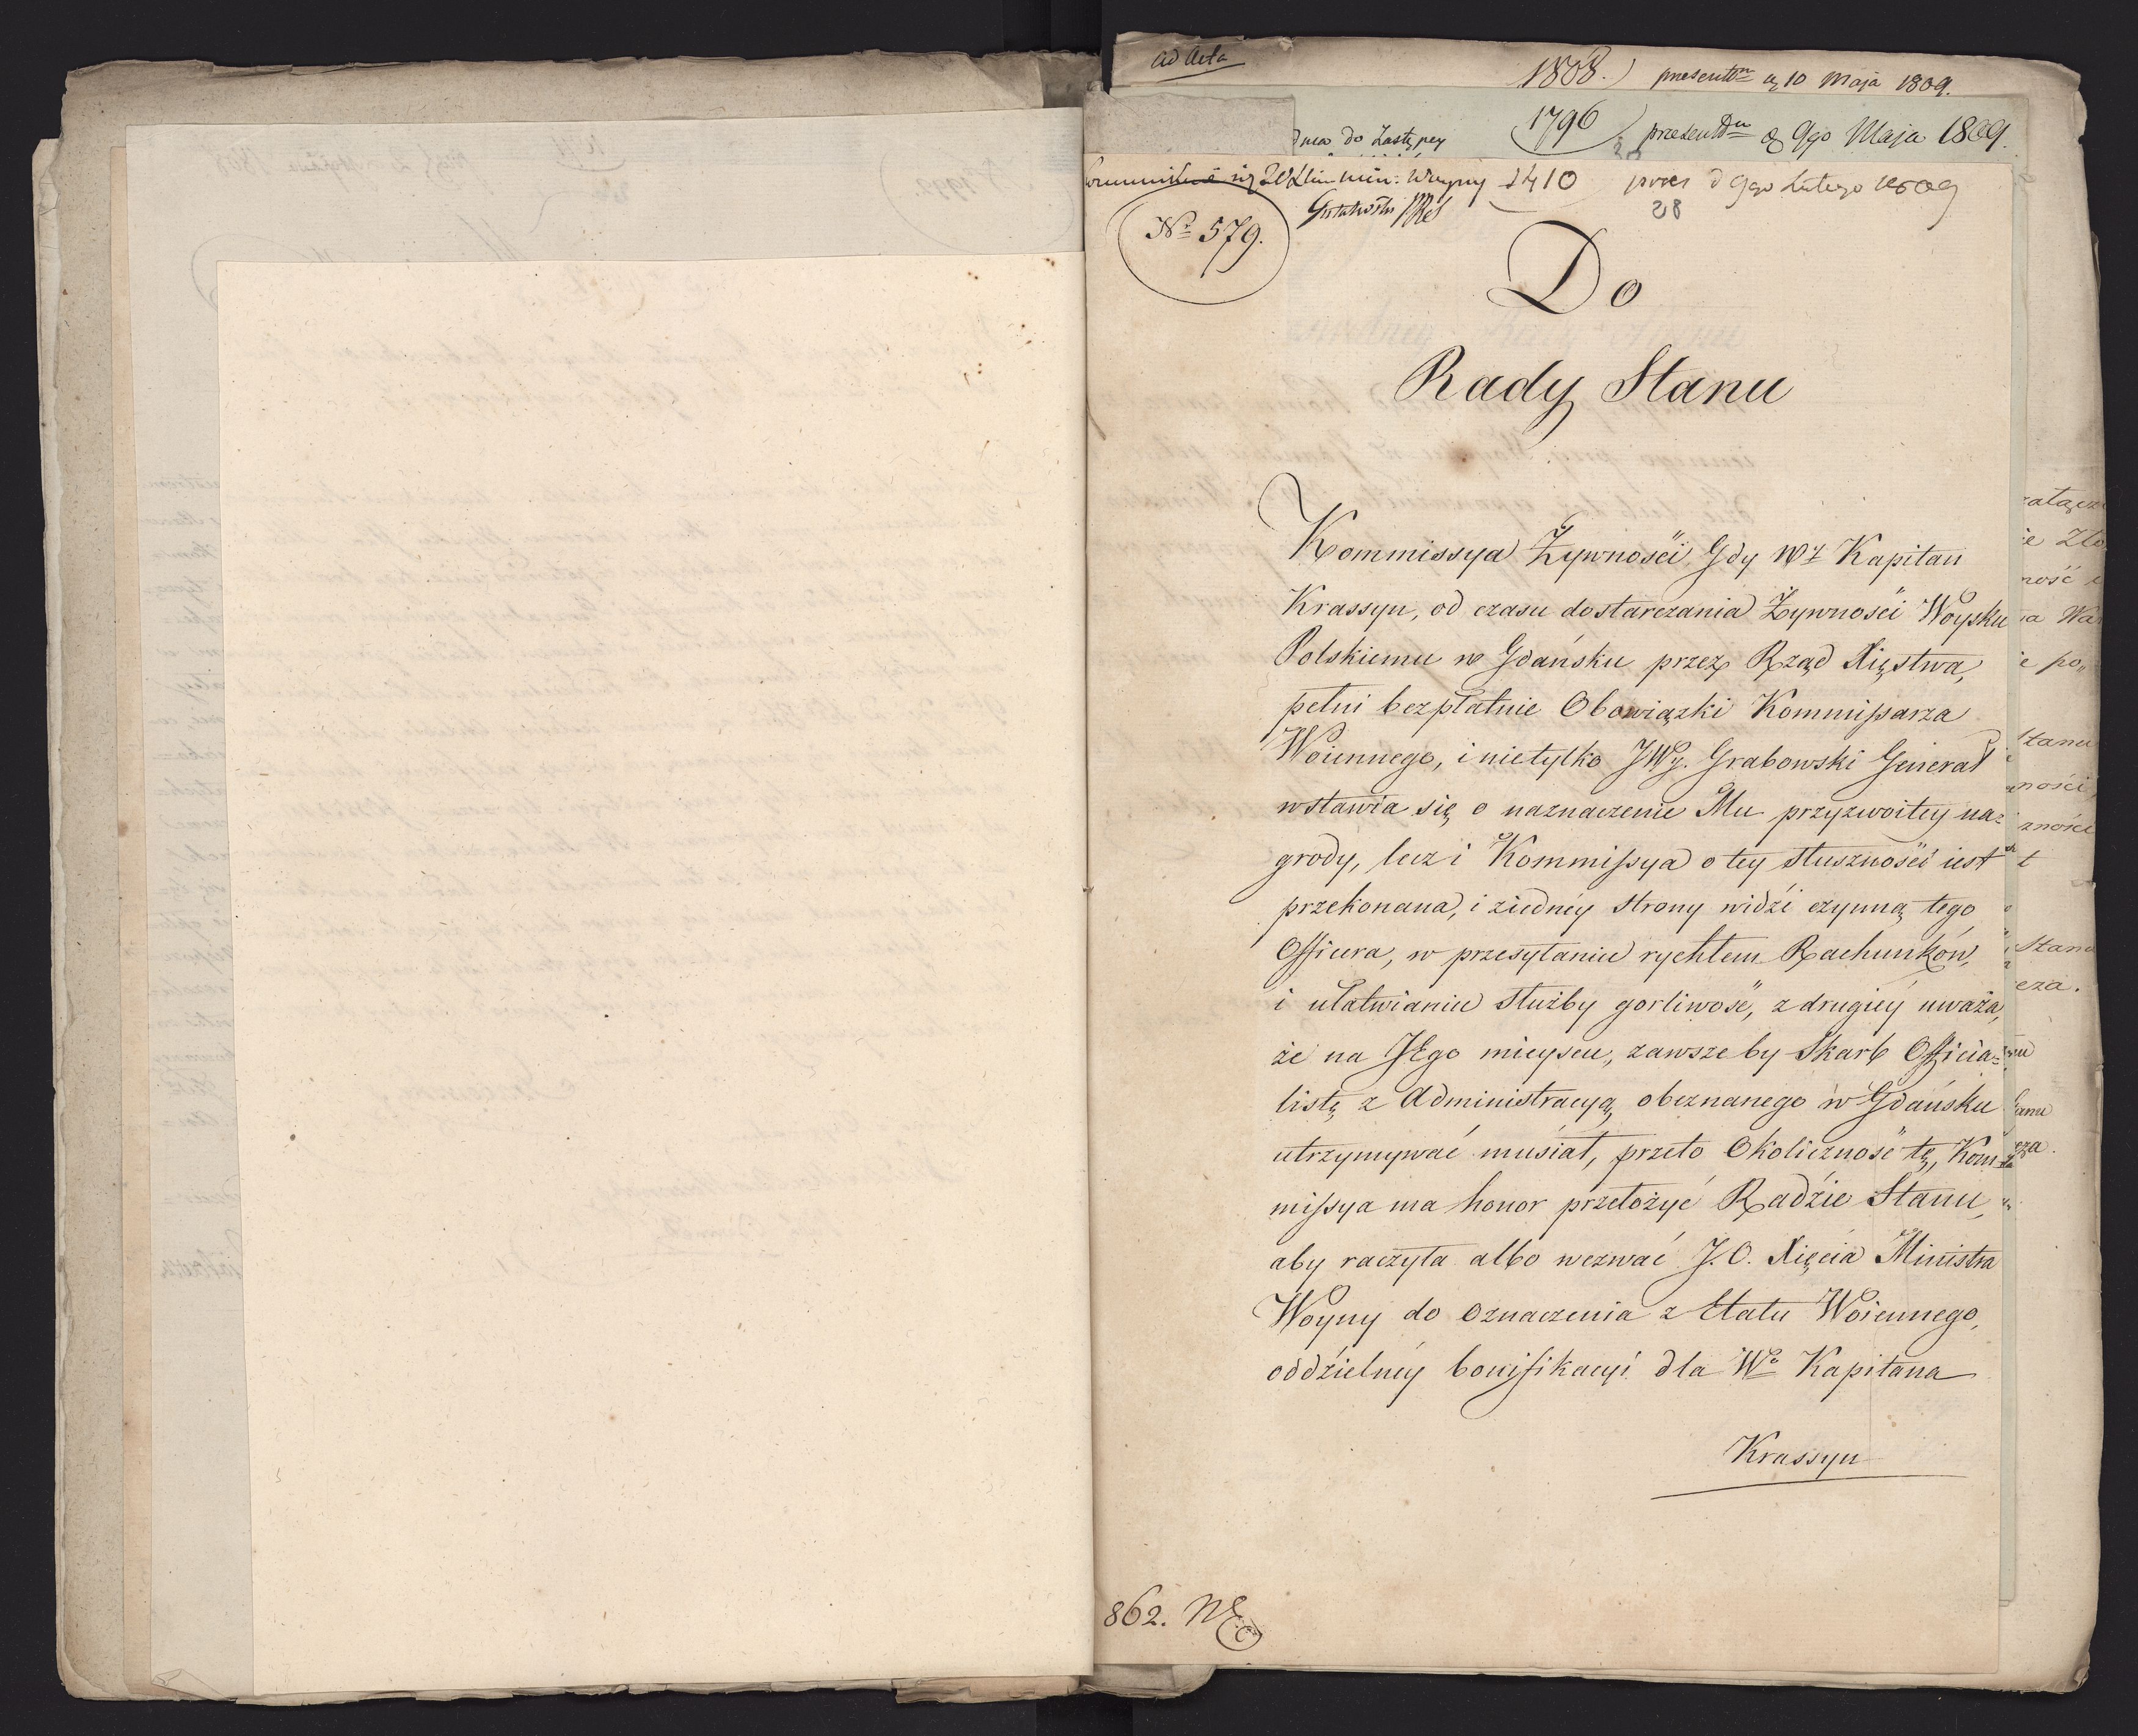 Ad Acta
1808. presentn d 10 Maja 1809.
dnea do Zastępcy 1796 presentdn d 9go Maja 1809.
Min: Woyny 1410 praes d 9go Lutego 1809
28
No 579.
Do
Rady Stanu
Kommissya Żywności Gdy Wz Kapitan
Krassyn, od czasu dostarczania Żywności Woysku
Polskiemu w Gdańsku przez Rząd Xięstwa,
pełni bezpłatnie Obowiązki Kommissarza
Woiennego, i nietylko JWy. Grabowski Generał
wstawia się o naznaczenie Mu przyzwoitey na=
grody, lecz i Kommissya o tey słuszności iest
przekonana, i ziednéy strony widzi czynną tego
Officera, w przesyłaniu rychłem Rachunków,
i ułatwianiu służby gorliwość, z drugiéy uważa,
że na JEgo mieyscu, zawszeby Skarb Officia=
listę z Administracyą obeznanego w Gdańsku
utrzymywać musiał, przeto Okoliczność tę, Kom=
missya ma honor przełożyć Radzie Stanu,
aby raczyła albo wezwać J.O. Xięcia Ministra
Woyny do oznaczenia z Etatu Woiennego,
oddzielnéy bonifikacyi dla Wo Kapitana
Krassyn
862.